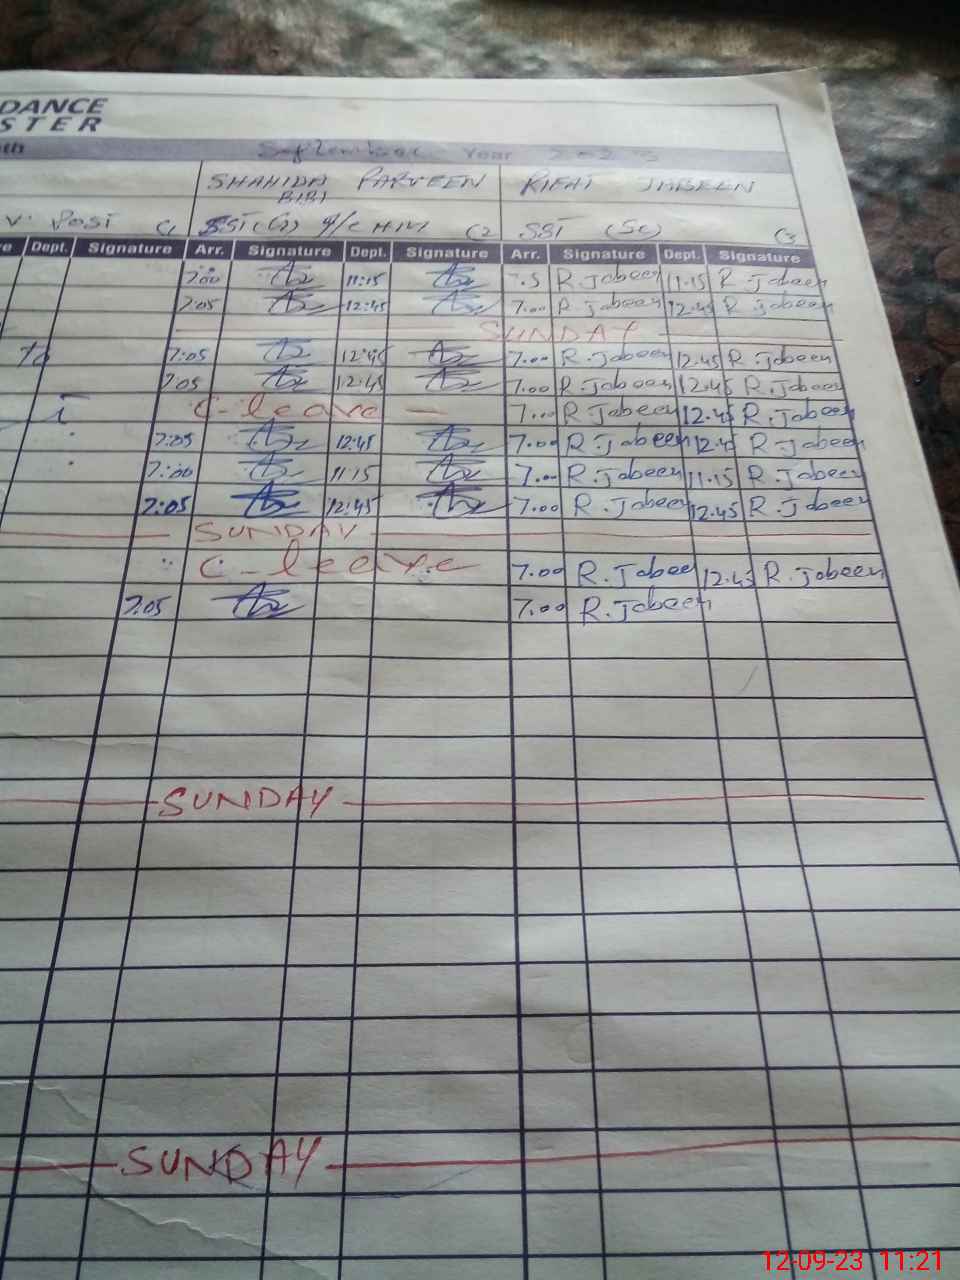 DANCE
STER
th September Year 2023
SHAHIDA PARVEEN RIFAT JABEEN
BIBI
V. Post C1 SST (G) I/C HM C2 SST (Sc) C3
re Dept. Signature Arr. Signature Dept. Signature Arr. Signature Dept. Signature
7:00 11:15 7.5 R.Jabeen 11.15 R.Jabeen
7:05 12:45 7.00 R.Jabeen 12.45 R.Jabeen
SUNDAY
to 7:05 12:45 7.00 R.Jabeen 12.45 R.Jabeen
7:05 12:45 7.00 R.Jabeen 12.45 R.Jabeen
C-leave 7.00 R.Jabeen 12.45 R.Jabeen
7:05 12:45 7.00 R.Jabeen 12.45 R.Jabeen
7:00 11:15 7.00 R.Jabeen 11.15 R.Jabeen
7:05 12:45 7.00 R.Jabeen 12.45 R.Jabeen
SUNDAY
C-leave 7.00 R.Jabee 12.45 R.Jabeen
7:05 7.00 R.Jabeen
SUNDAY
SUNDAY
12-09-23 11:21